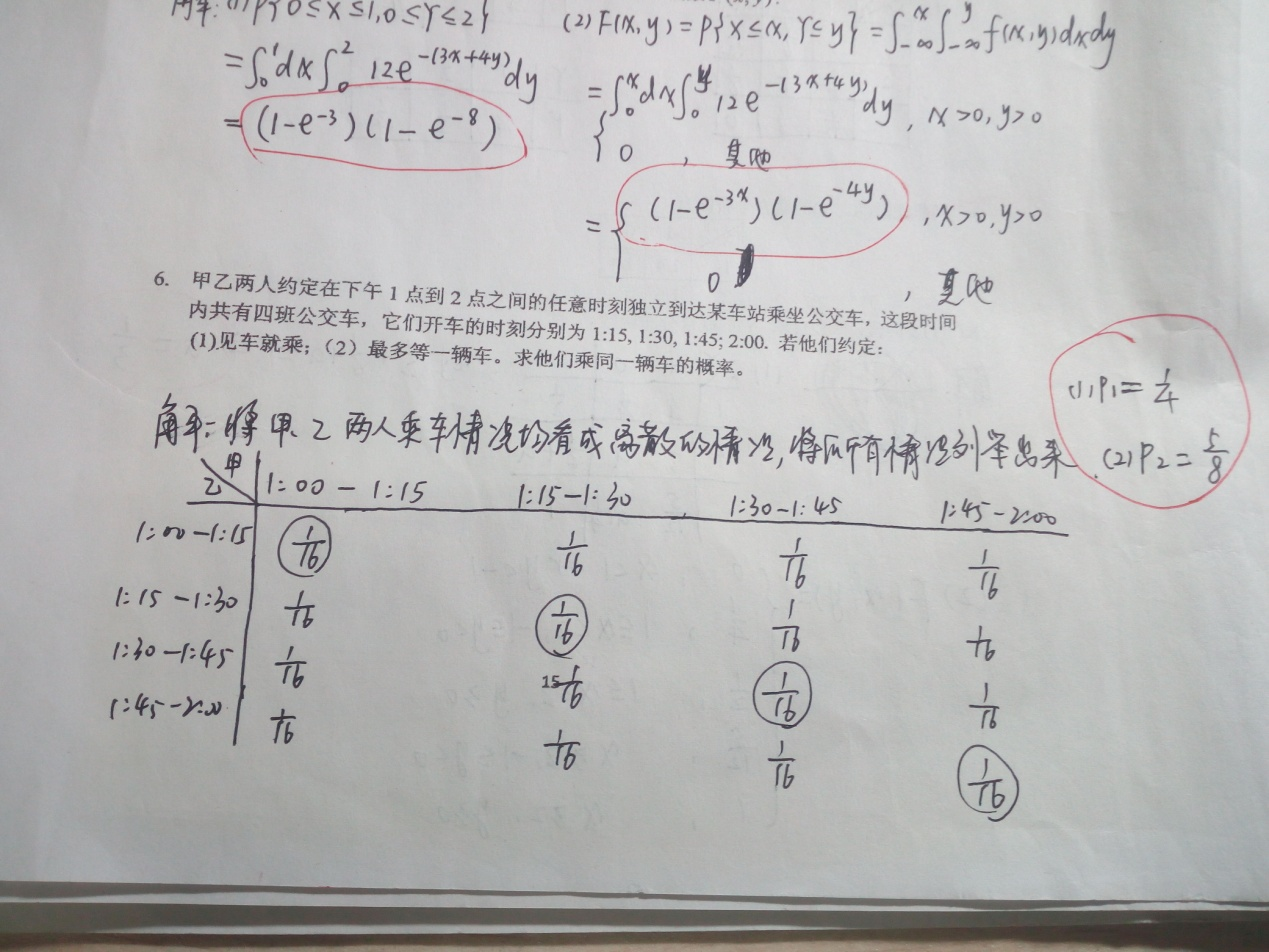 解:(1) P{0≤X≤1,0≤Y≤2}
=∫₀¹dx∫₀²12e^{-(3x+4y)}dy
=(1-e^{-3})(1-e^{-8})
(2) F(x,y)=P{X≤x,Y≤y}=∫_{-∞}^{x}∫_{-∞}^{y}f(x,y)dxdy
={∫₀ˣdx∫₀ʸ12e^{-(3x+4y)}dy, x>0,y>0
0, 其他
={(1-e^{-3x})(1-e^{-4y}), x>0,y>0
0, 其他
6. 甲乙两人约定在下午1点到2点之间的任意时刻独立到达某车站乘坐公交车，这段时间
内共有四班公交车，它们开车的时刻分别为 1:15, 1:30, 1:45; 2:00. 若他们约定：
(1)见车就乘；（2）最多等一辆车。求他们乘同一辆车的概率。
解:将甲、乙两人乘车情况均看成离散的情况,将所有情况列举出来.
(1)P₁=1/4
(2)P₂=5/8
甲
乙 1:00-1:15 1:15-1:30 1:30-1:45 1:45-2:00
1:00-1:15 1/16 1/16 1/16 1/16
1:15-1:30 1/16 1/16 1/16 1/16
1:30-1:45 1/16 15 1/16 1/16 1/16
1:45-2:00 1/16 1/16 1/16 1/16